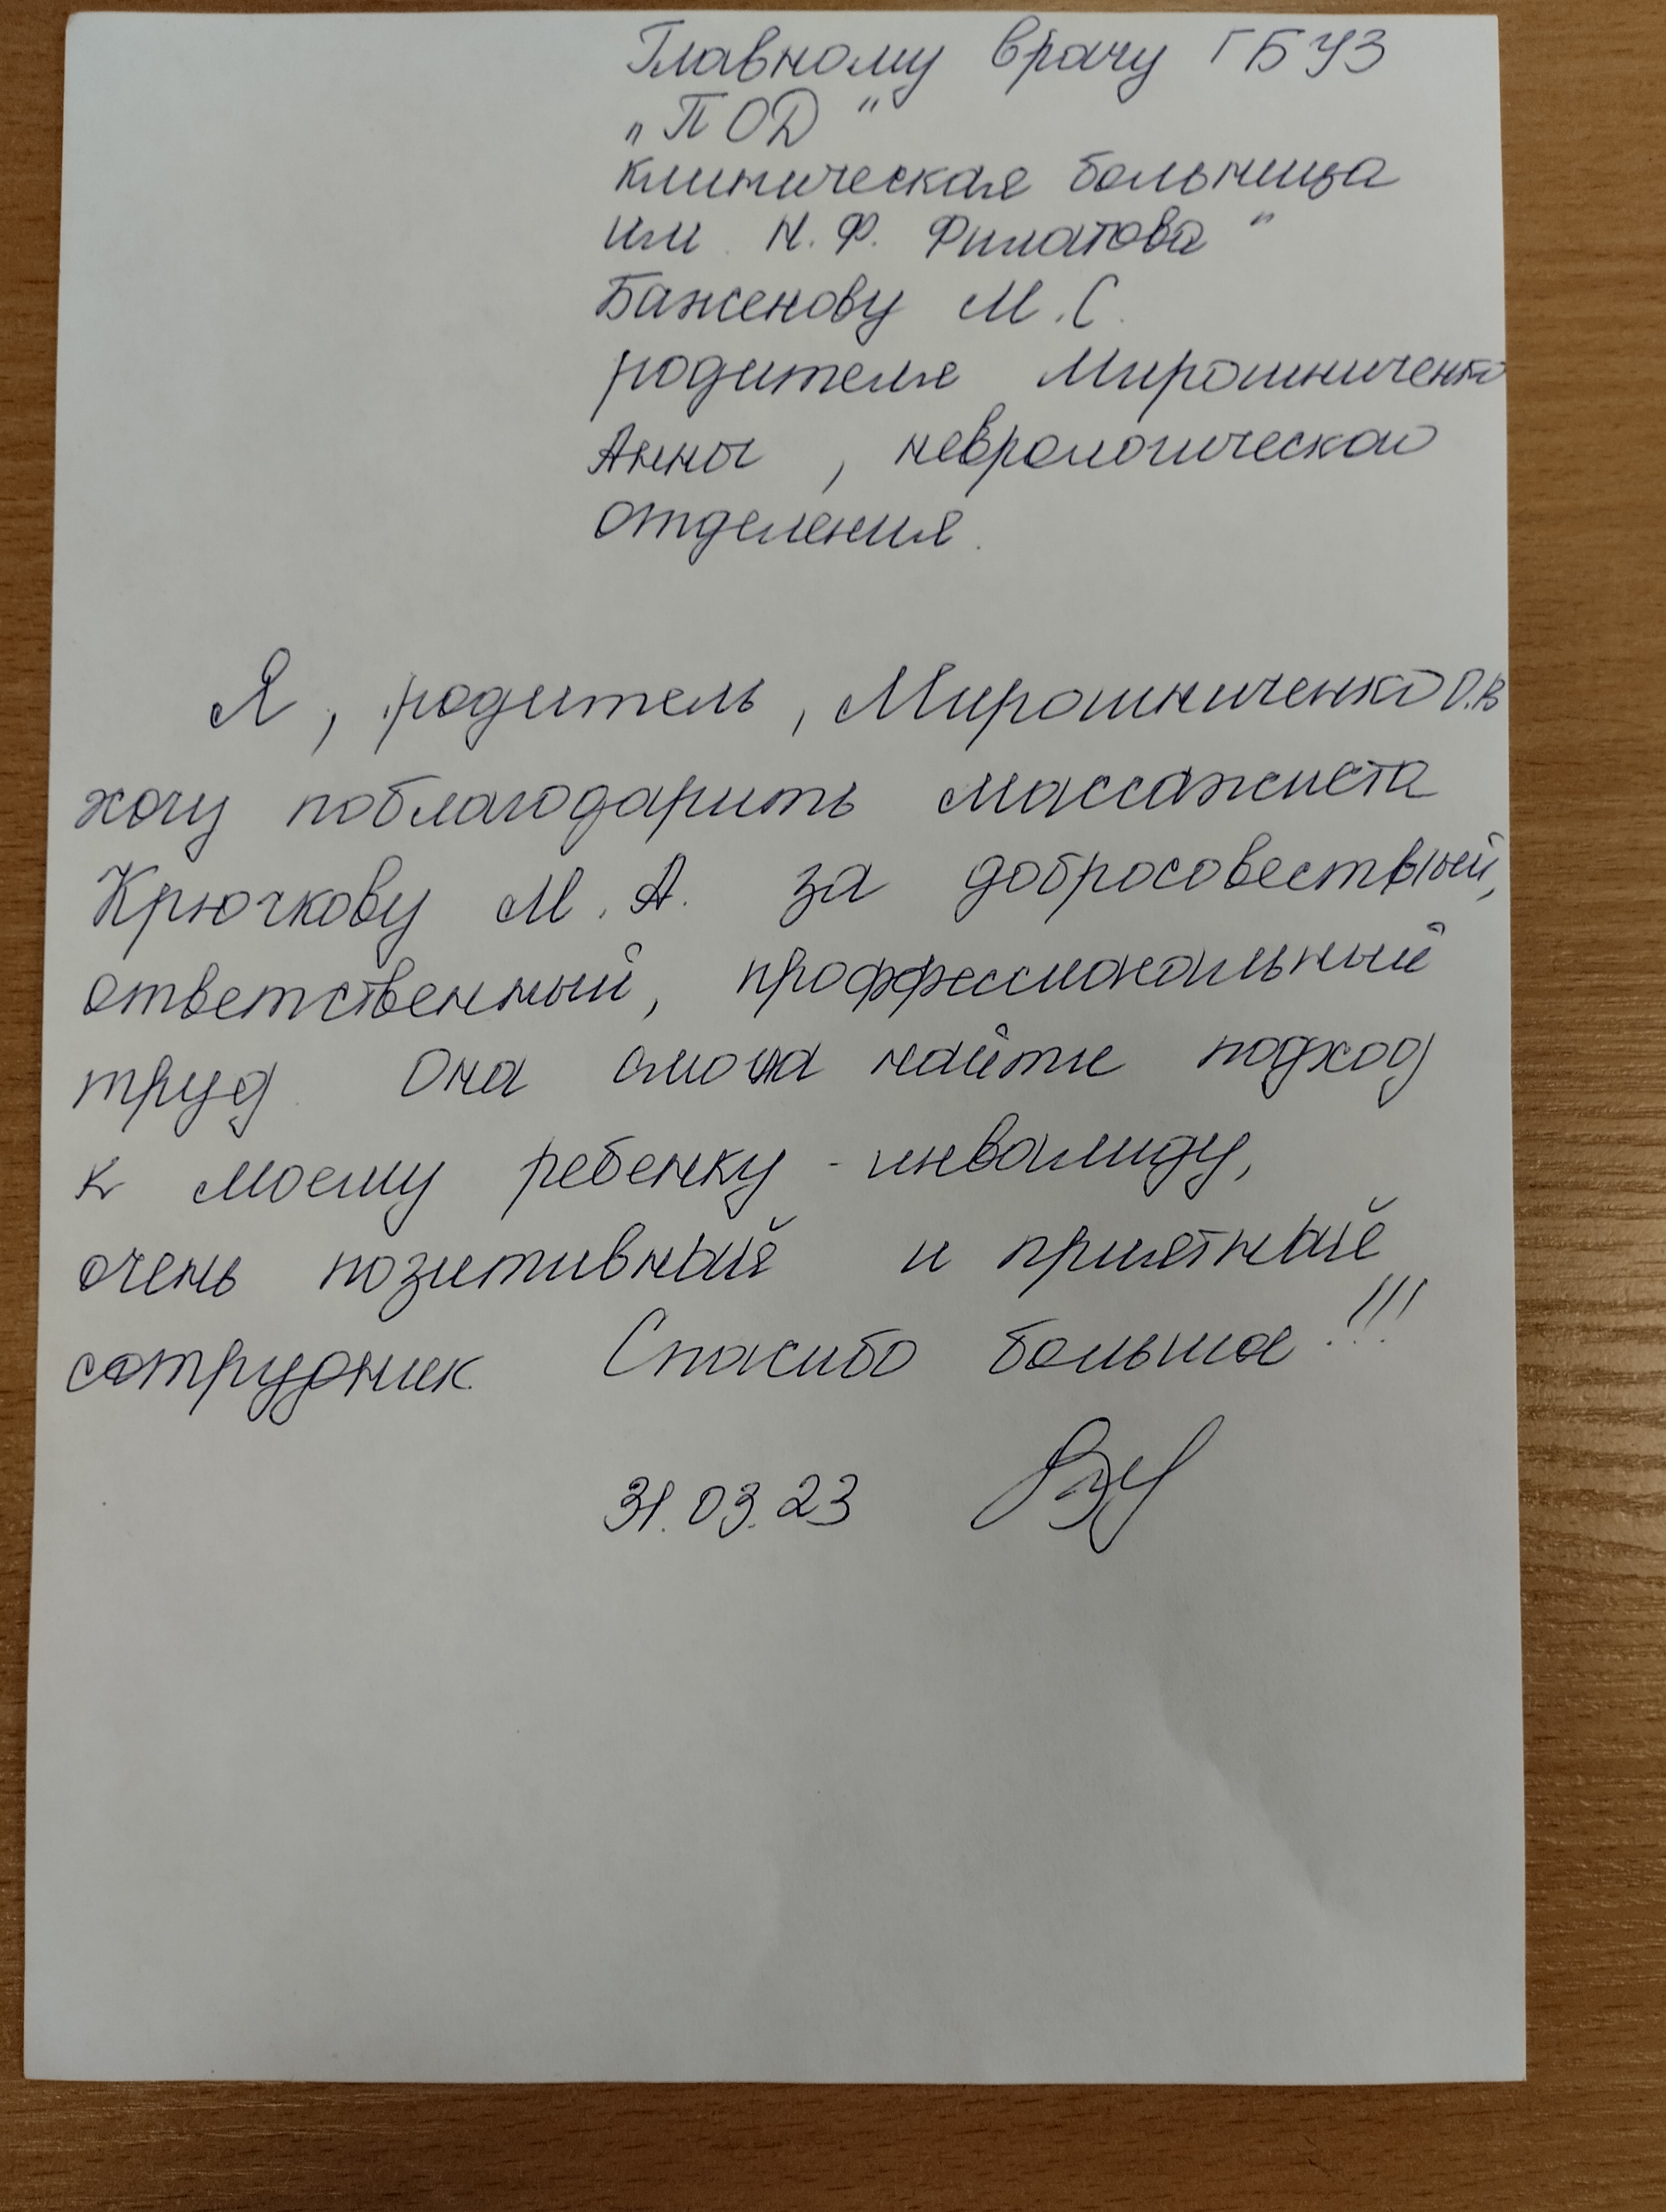 Главному врачу ГБУЗ
„ПОД"
клиническая больница
им. Н.Ф. Филатова"
Баженову М.С.
родителя Мирошниченко
Анны, неврологическое
отделения.
Я, родитель, Мирошниченко О.В
хочу поблагодарить массажиста
Крючкову М.А. за добросовестный,
ответственный, проффессиональный
труд. Она смогла найти подход
к моему ребенку - инвалиду,
очень позитивный и приятный
сотрудник. Спасибо большое!!!
31.03.23